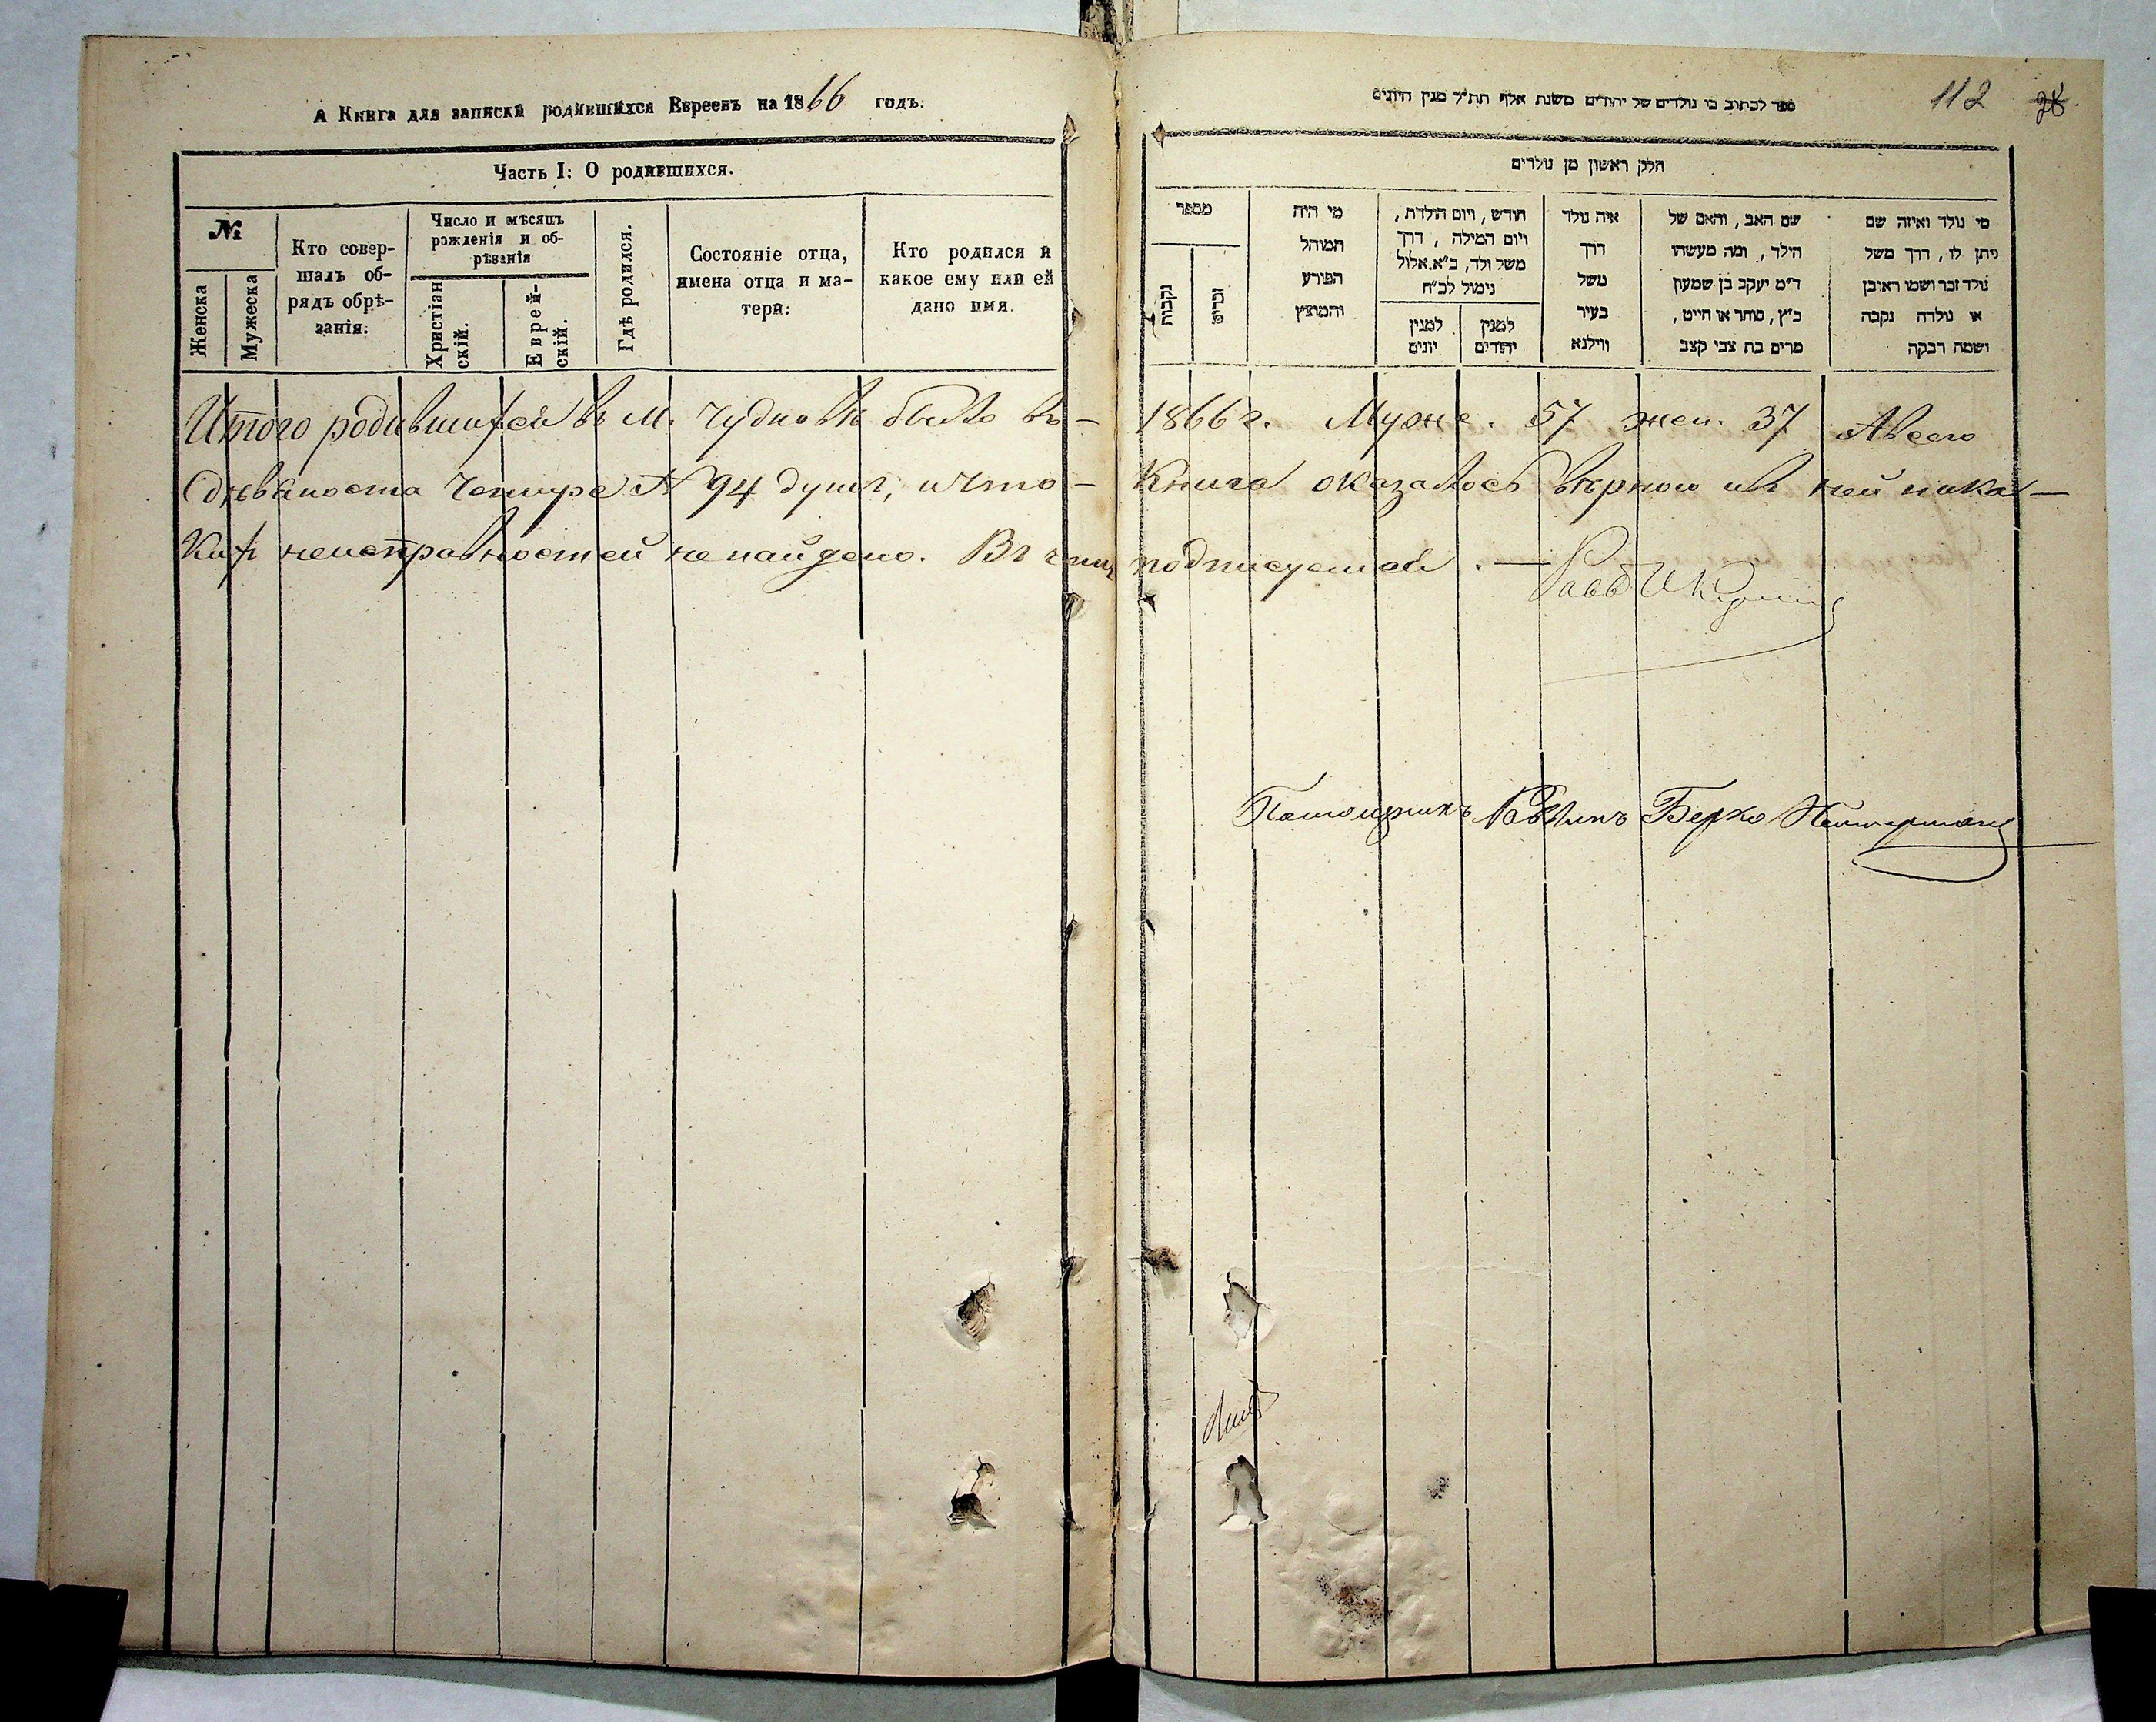 А Книга для записки родившихся Евреевъ на 1866 годъ.
Часть I: О родившихся.
№
Женска
Мужеска
Кто совер-
шалъ об-
рядъ обрѣ-
занія.
Число и мѣсяцъ
рожденія и об-
рѣзанія
Христіан
скій.
Еврей-
скій.
Гдѣ родился.
Состояніе отца,
имена отца и ма-
тери.
Кто родился и
какое ему или ей
дано имя.
Итого родившихся въ М. Чудновѣ было въ-
Одѣваноста Четыре А 94 душъ, и что-
кихъ неисправностей не найдено. Въ чемъ
112
ספר לכתוב בו נולדים של יהודים משנת אלף תת״ל מנין היונים
חלק ראשון מן נולדים
מספר
נקבות
זכרים
מי היה
המוהל
הפורע
והמוצץ
חודש, ויום הולדת,
ויום המילה, דרך
משל ולד, כ״א אלול
נימול לכ״ח
למנין
יונים
למנין
יהודים
איה נולד
דרך
משל
בעיר
ווילנא
שם האב, והאם של
הילד, ומה מעשהו
ד״מ יעקב בן שמעון
כ״ץ, סוחר או חייט,
מרים בת צבי קצב
מי נולד ואיזה שם
ניתן לו, דרך משל
נולד זכר ושמו ראובן
או נולדה נקבה
ושמה רבקה
1866 г. Муже. 57 жен. 37 Авсего
Книга оказалось вѣрною и въ ней ника-
подписуемся.— Рабб
Помощникъ Раввинъ Берко